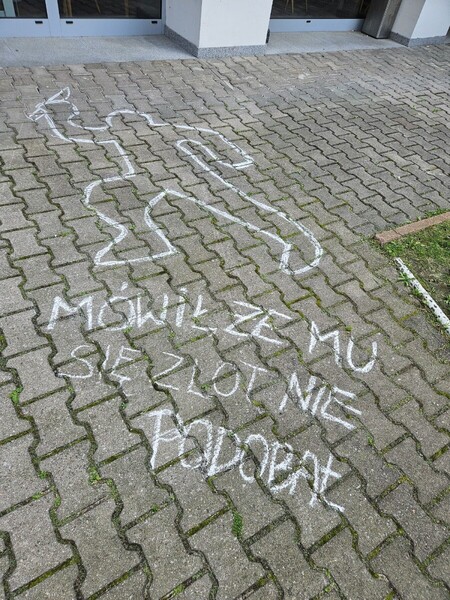 MÓWIŁ ŻE MU
SIĘ ZLOT NIE
PODOBAŁ